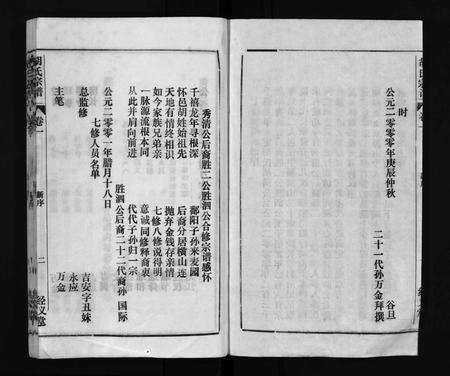 时
公元二〇〇〇年庚辰仲秋
谷旦
二十一代孙万金拜撰
秀清公后裔胜二公胜泗公合修宗谱感怀
千禧龙年寻根深
鄱阳子孙来麦國
怀邑胡姓始祖先
后裔分居横山连
天地有情终相识
抛弃金钱存亲情
如今家族兄弟亲
七修八修说得明
一脉源流根本同
意诚同修释裔衷
从此并肩向前进
代代子孙归一宗
胜泗公后裔二十二代裔孙 国际
公元二〇〇一年腊月十八日
七修人员名单
总监修
吉安字丑妹
永应
主笔
万金
胡氏宗谱
卷一
新序
二
经义堂